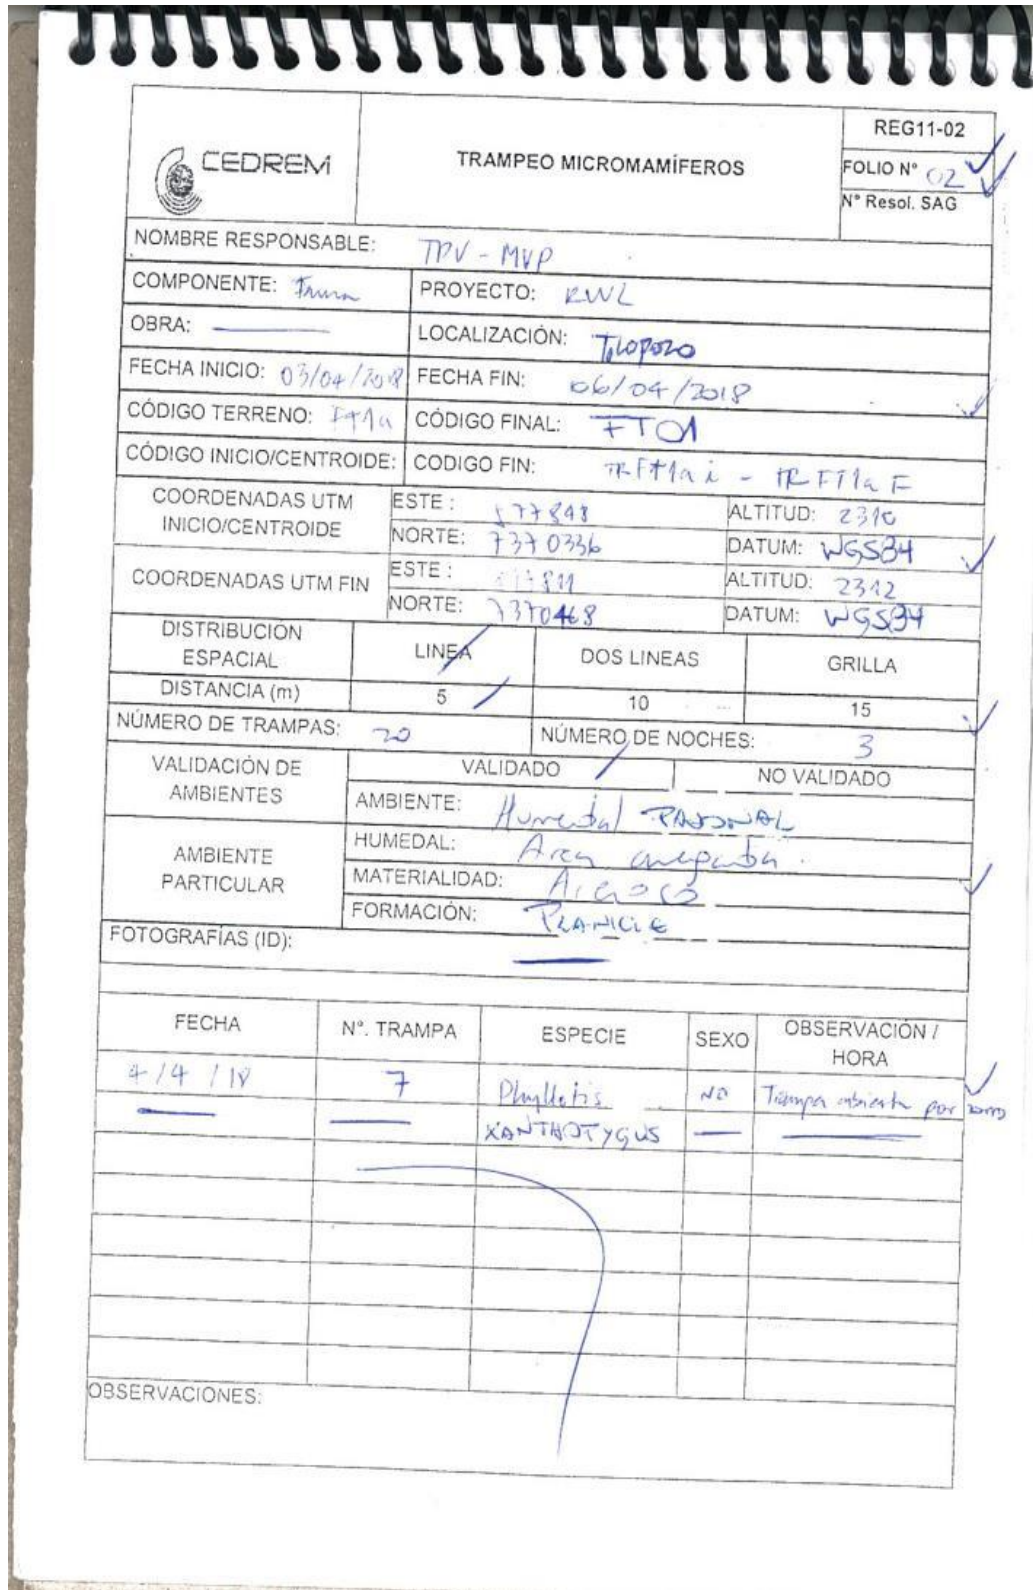 CEDREM
TRAMPEO MICROMAMÍFEROS
REG11-02
FOLIO Nº 02
Nº Resol. SAG
NOMBRE RESPONSABLE: TPV - MVP
COMPONENTE: Fauna PROYECTO: RWL
OBRA: LOCALIZACIÓN: Tilopozo
FECHA INICIO: 03/04/2018 FECHA FIN: 06/04/2018
CÓDIGO TERRENO: CÓDIGO FINAL: FT01
CÓDIGO INICIO/CENTROIDE: CODIGO FIN:
COORDENADAS UTM INICIO/CENTROIDE
ESTE : 577848 ALTITUD:
NORTE: 7370336 DATUM: WGS84
COORDENADAS UTM FIN
ESTE : ALTITUD: 2312
NORTE: 7370468 DATUM: WGS84
DISTRIBUCIÓN ESPACIAL LINEA DOS LINEAS GRILLA
DISTANCIA (m) 5 10 15
NÚMERO DE TRAMPAS: 20 NÚMERO DE NOCHES: 3
VALIDACIÓN DE AMBIENTES VALIDADO NO VALIDADO
AMBIENTE: Humedal PAJONAL
AMBIENTE PARTICULAR
HUMEDAL: Area anegada.
MATERIALIDAD:
FORMACIÓN: PLANICIE
FOTOGRAFÍAS (ID):
FECHA Nº. TRAMPA ESPECIE SEXO OBSERVACIÓN / HORA
4/4/18 7 Phyllotis NO Trampa abierta por zorro
XANTHOPYGUS
OBSERVACIONES: